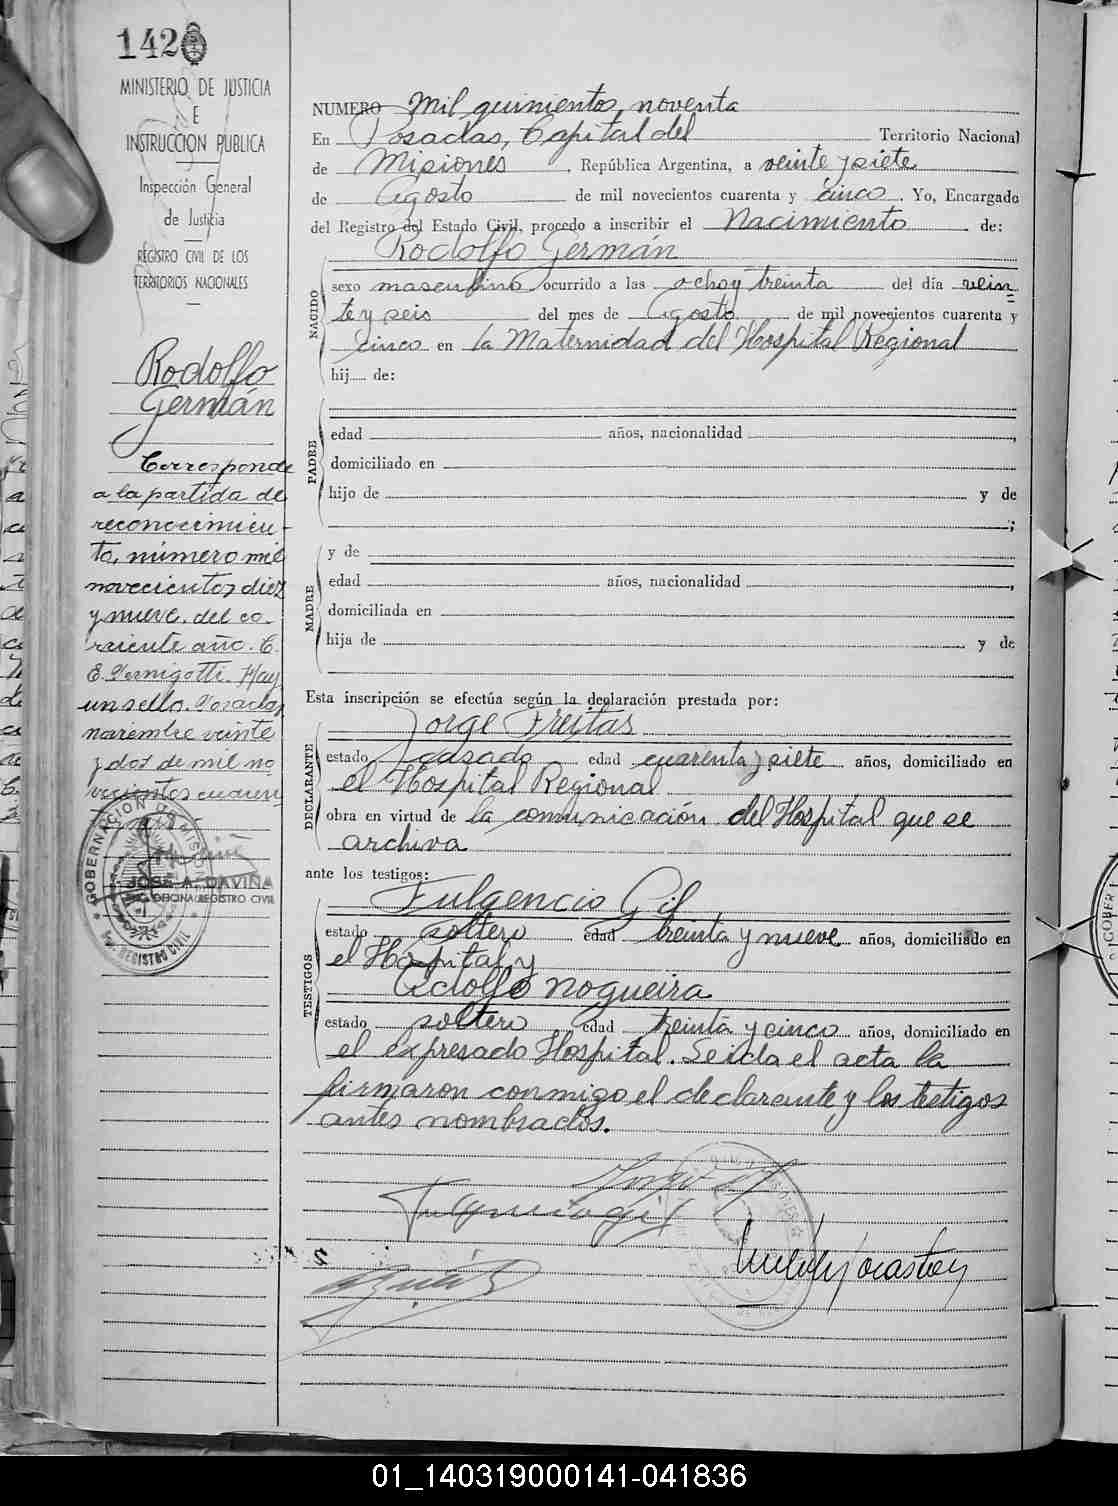 142
MINISTERIO DE JUSTICIA
E
INSTRUCCION PUBLICA
Inspección General
de Justicia
REGISTRO CIVIL DE LOS
TERRITORIOS NACIONALES
Rodolfo
Germán
Corresponde
a la partida de
reconocimien-
to, número mil
novecientos diez
y nueve, del co-
rriente año. C.
E. Vernigotti. Hay
un sello. Posadas
noviembre veinte
y dos de mil no
vecientos cuaren
GOBERNACION DE MISIONES
JOSE A. DAVIÑA
OFICINA REGISTRO CIVIL
REGISTRO CIVIL
NUMERO Mil quinientos noventa
En Posadas, Capital del Territorio Nacional
de Misiones, República Argentina, a veinte y siete
de Agosto de mil novecientos cuarenta y cinco. Yo, Encargado
del Registro del Estado Civil, procedo a inscribir el Nacimiento de:
Rodolfo Germán
NACIDO
sexo masculino ocurrido a las ocho y treinta del día vein
te y seis del mes de Agosto de mil novecientos cuarenta y
cinco en la Maternidad del Hospital Regional
hij de:
PADRE
edad años, nacionalidad ,
domiciliado en
hijo de y de
;
MADRE
y de
edad años, nacionalidad ,
domiciliada en
hija de y de
Esta inscripción se efectúa según la declaración prestada por:
Jorge Freitas
DECLARANTE
estado casado edad cuarenta y siete años, domiciliado en
el Hospital Regional
obra en virtud de la comunicación del Hospital que se
archiva
ante los testigos:
Fulgencio Gil
TESTIGOS
estado soltero edad treinta y nueve años, domiciliado en
el Hospital y
Adolfo Nogueira
estado soltero edad treinta y cinco años, domiciliado en
el expresado Hospital. Leida el acta la
firmaron conmigo el declarante y los testigos
antes nombrados.
Fulgencio Gil
01_140319000141-041836